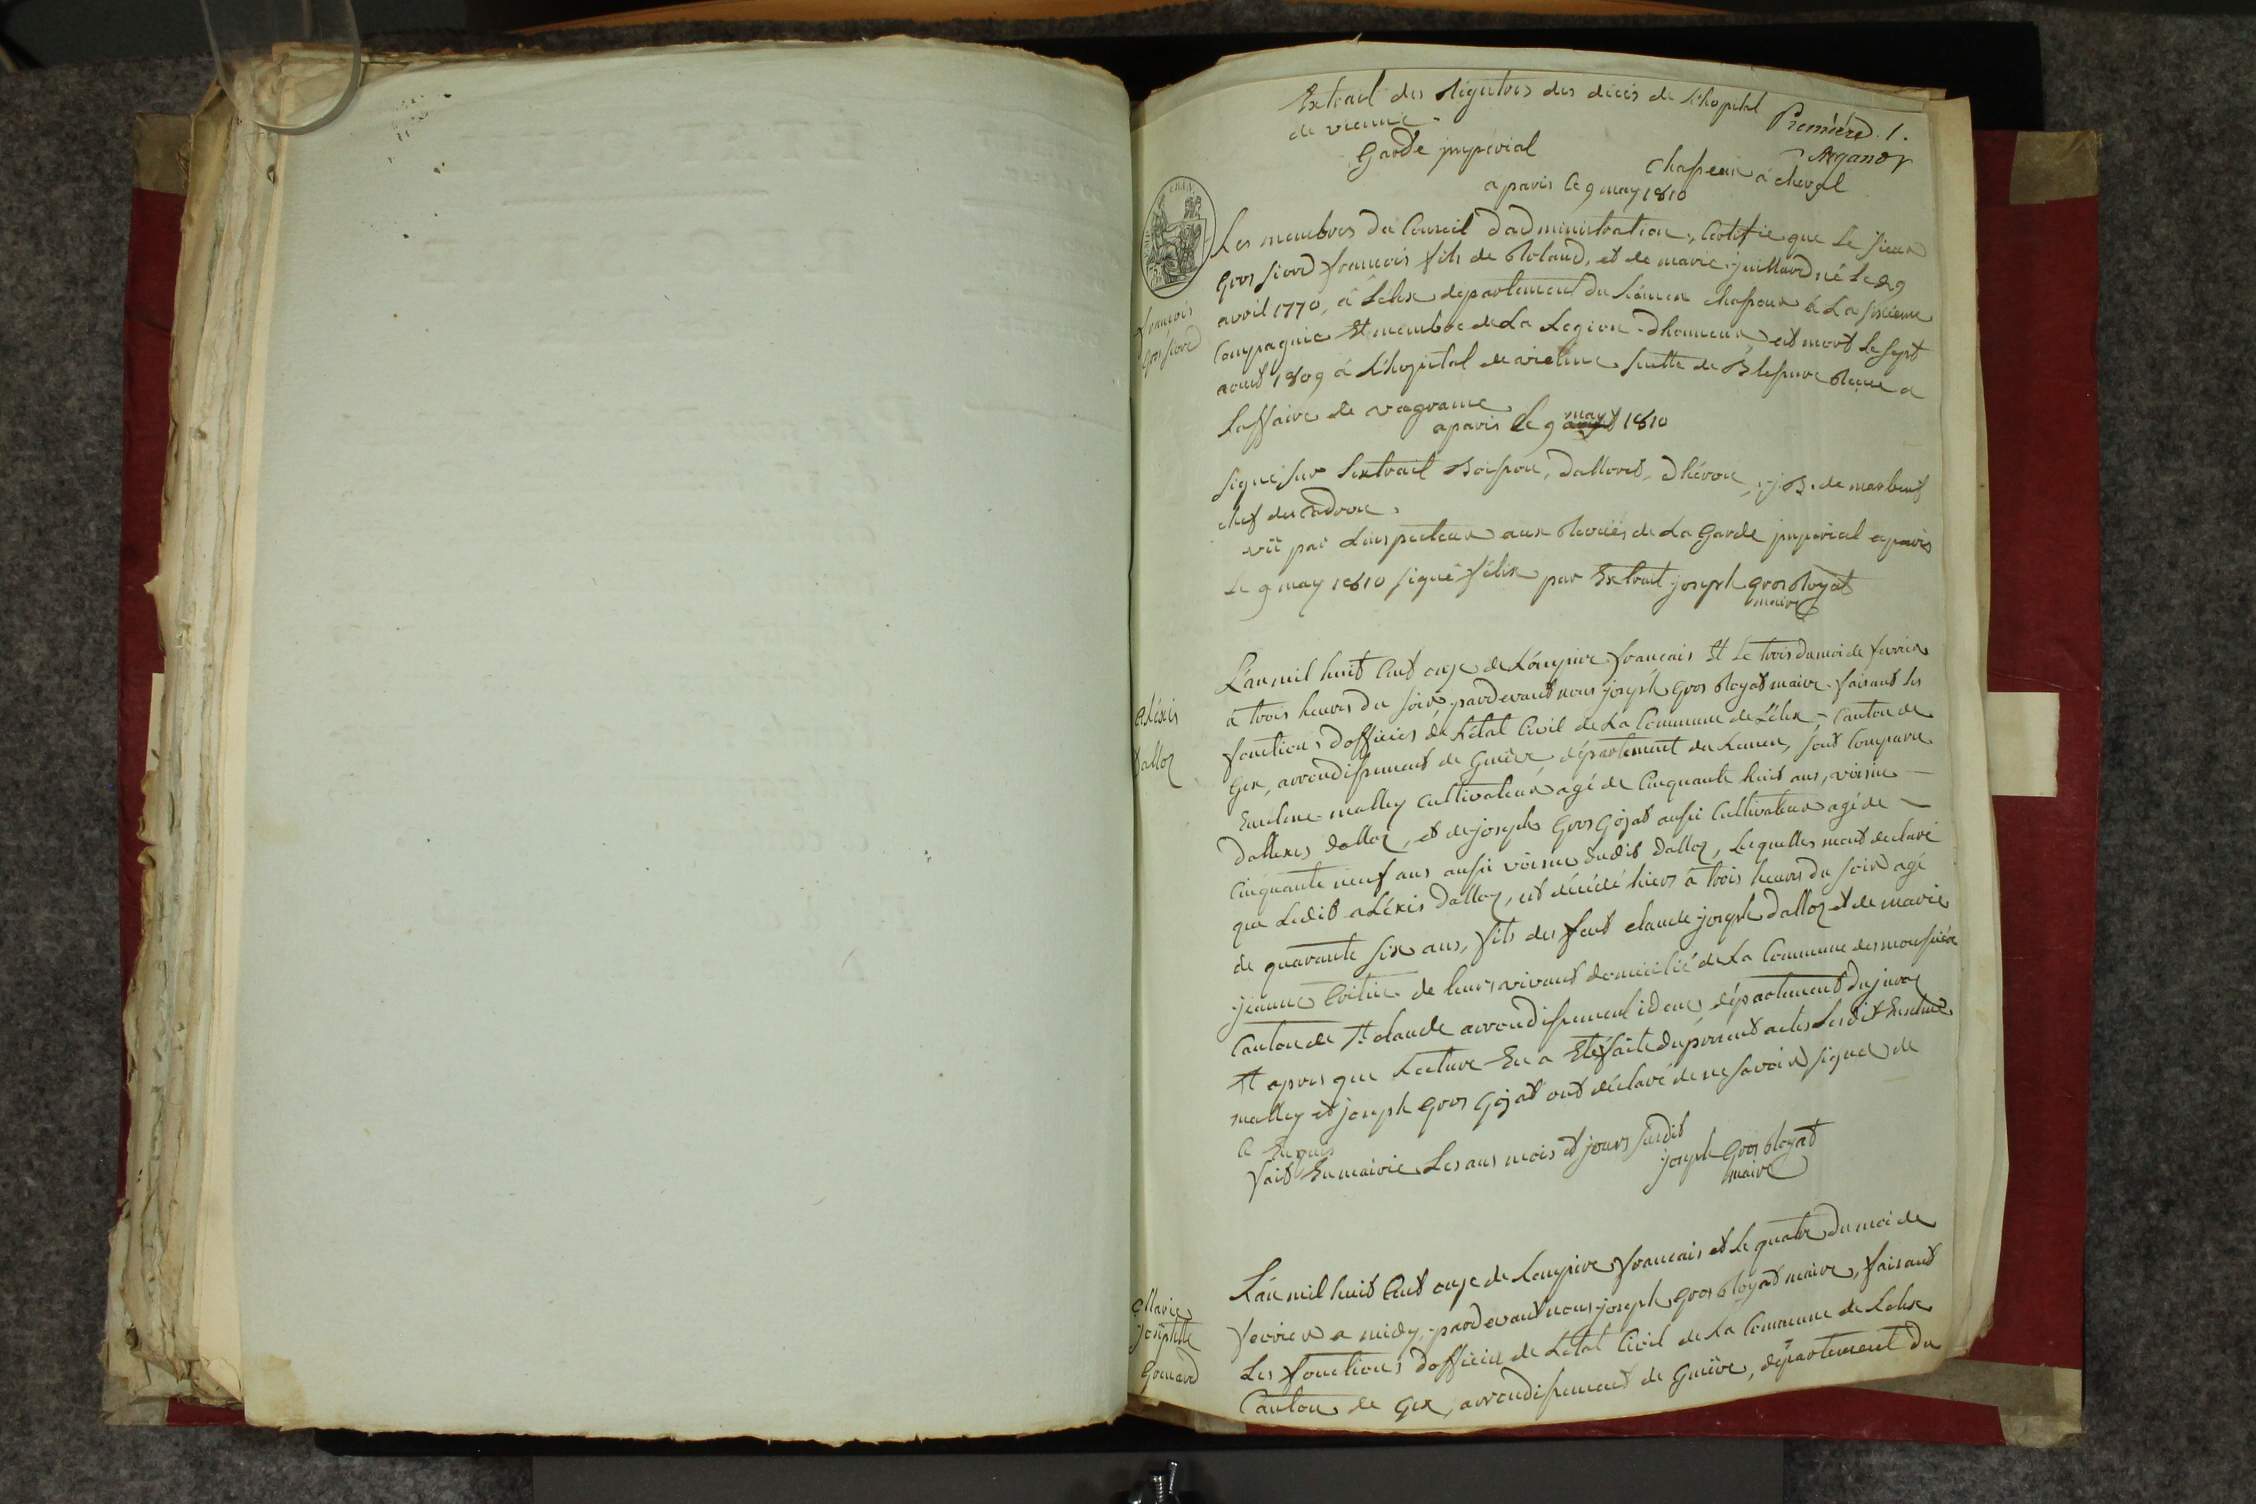 Extrait des Registres des décés de L'hopital
de vienne.
Première. 1.
Argand
Garde jmpérial
chasseur à cheval
a paris le 9 may 1810
Les membres du Conseil dadministration, Certifie que le sieur
Gros fiord francois fils de Roland, et de marie juillard né le 29
avril 1770, à Lélex departement du Léman chasseur à La sixieme
Compagnie Et membre de La Legion dhonneur, est mort le sept
aoust 1809 à L'hopital de vienne suitte de Blessure Reçue a
Laffaire de vagrame
a paris le 9 may 1810
signé sur Lextrait Boisson, dallord, dhéron, j. B. de marbeuf
chef descadron.
vû par Linspecteur aux Revües de La Garde jmpérial a paris
Le 9 may 1810 signé félix par Extrait joseph gros Royat
maire
françois
Gros fiord
L'an mil huit Cent onze de L'émpire français Et Le trois du moi de fevrier
à trois heures du soir, pardevant nous joséph Gros Royat maire faisant les
fonctions dofficiés de Létat Civil de La Commune de Lélex, Canton de
Gex, arrondissement de Genève, département du Leman, sont Comparu
Enselme malley Cultivateur agé de Cinquante huit ans, voisin
dallexes dalloz, et de joseph Gros Gojat aussi Cultivateur agé de
Cinquante neuf ans aussi voisin dudit dalloz, Lesquelles mont declaré
que Ledit aLéxis dalloz, est décédé hiers à trois heures du soir agé
de quarante six ans, fils des feut claude joseph dalloz et de marie
jeanne de leurs vivant domicilié de La Commune des moussiére
Canton de St. claude arrondissement idem, département du jura
Et apres que Lecture En a Eté faite du présent actes Lesdit Enselme
malley et joseph gros Gojat ont déclaré de ne savoir signer de
ce Enquis
fait En mairie Les ans mois et jours susdit
joseph Gros Royat
maire
aLéxis
dalloz
L'an mil huit Cent onze de Lempire francais et le quatre du moi de
fevrier a midy, pardevant nous joseph gros Royat maire, faisant
Les fonctions dofficier de Létat Civil de La Commune de Lelex
Canton de Gex, arrondissement de Genève, département du
Marie
joséphtte
Gonard